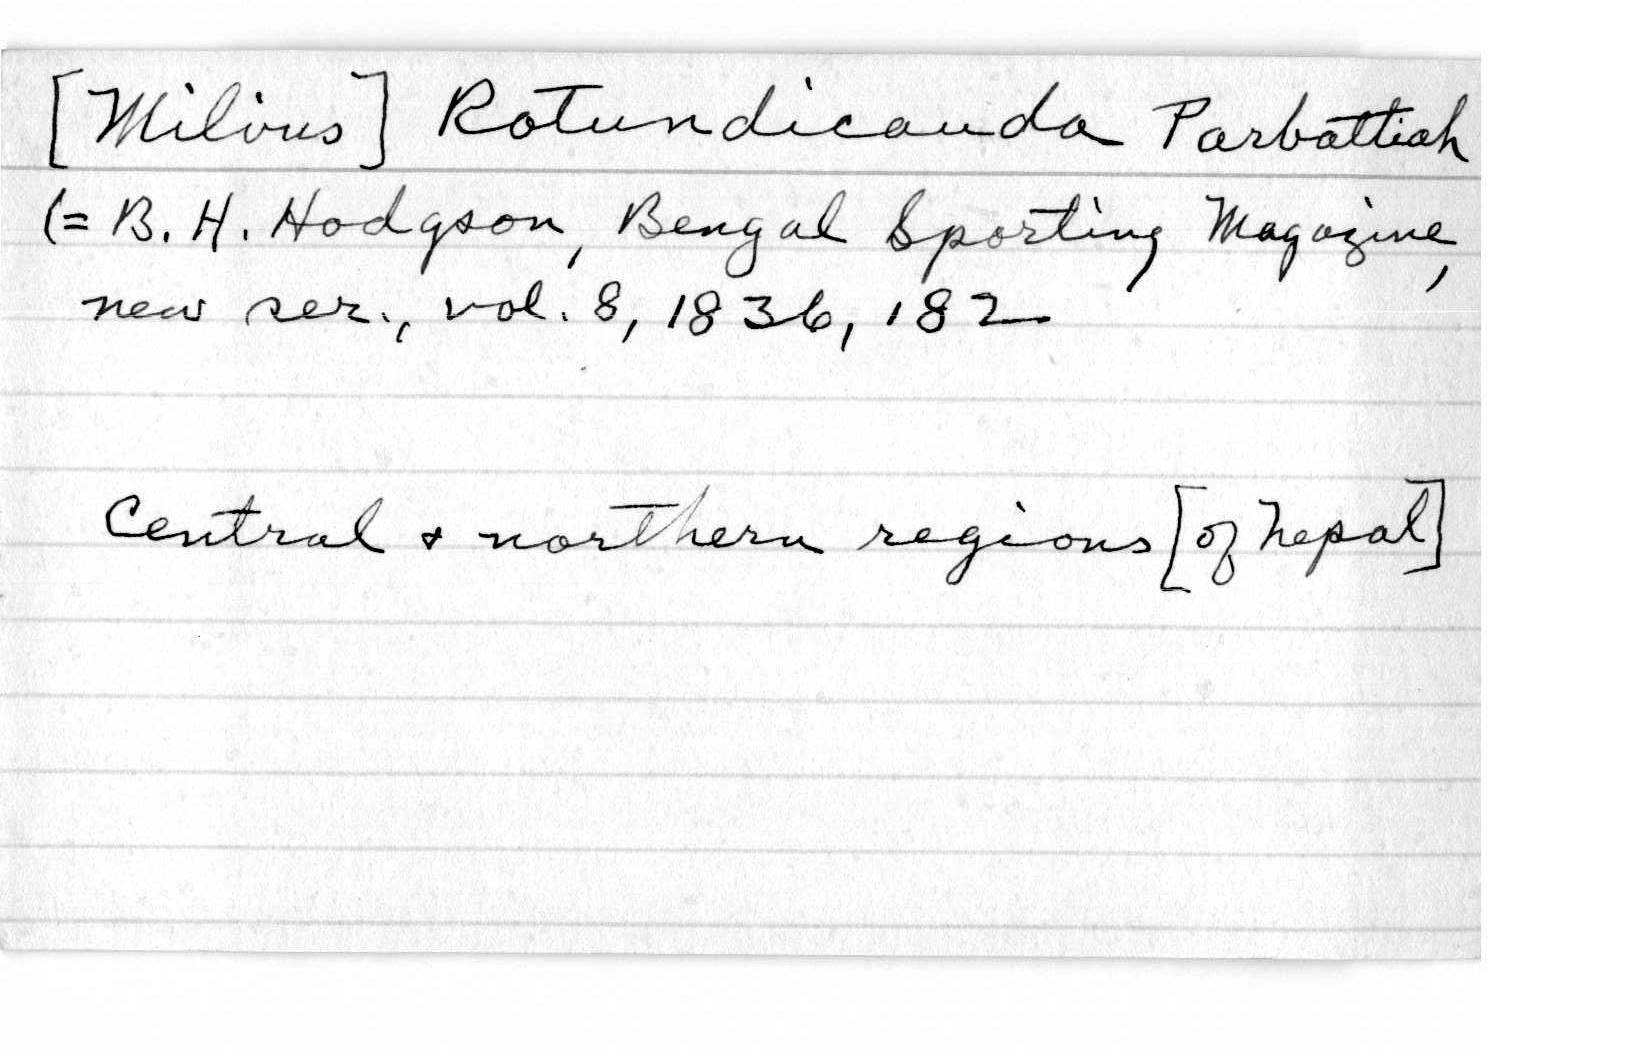 [Milvus] Rotundicauda Parbattiah
(= B. H. Hodgson, Bengal Sporting Magazine,
new ser., vol. 8, 1836, 182
Central & northern regions [of Nepal]